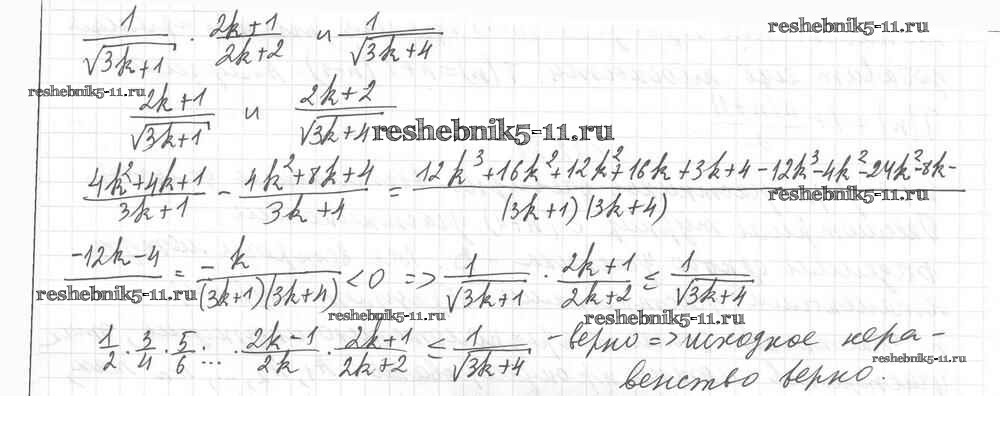 1/√(3k+1) · (2k+1)/(2k+2) и 1/√(3k+4)
reshebnik5-11.ru
reshebnik5-11.ru
(2k+1)/√(3k+1) и (2k+2)/√(3k+4)
reshebnik5-11.ru
(4k²+4k+1)/(3k+1) - (4k²+8k+4)/(3k+4) = (12k³+16k²+12k²+16k+3k+4-12k³-4k²-24k²-8k-
reshebnik5-11.ru
(3k+1)(3k+4)
(-12k-4)/ = -k/((3k+1)(3k+4)) < 0 => 1/√(3k+1) · (2k+1)/(2k+2) ≤ 1/√(3k+4)
reshebnik5-11.ru
reshebnik5-11.ru
reshebnik5-11.ru
1/2 · 3/4 · 5/6 · ... · (2k-1)/2k · (2k+1)/(2k+2) ≤ 1/√(3k+4) - верно => исходное нера-
reshebnik5-11.ru
венство верно.